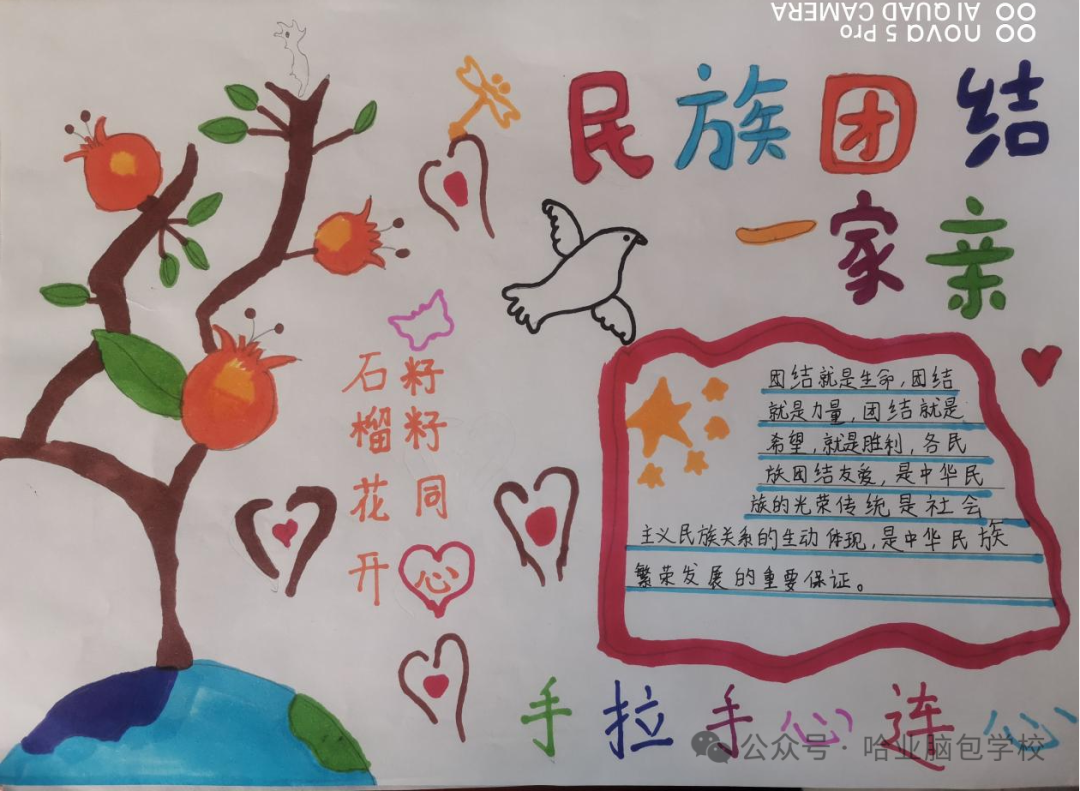 AI QUAD CAMERA
nova 5 Pro
民族团结
一家亲
石榴花开
籽籽同心
团结就是生命,团结
就是力量,团结就是
希望,就是胜利,各民
族团结友爱,是中华民
族的光荣传统是社会
主义民族关系的生动体现,是中华民族
繁荣发展的重要保证。
手拉手心连心
公众号·哈业脑包学校